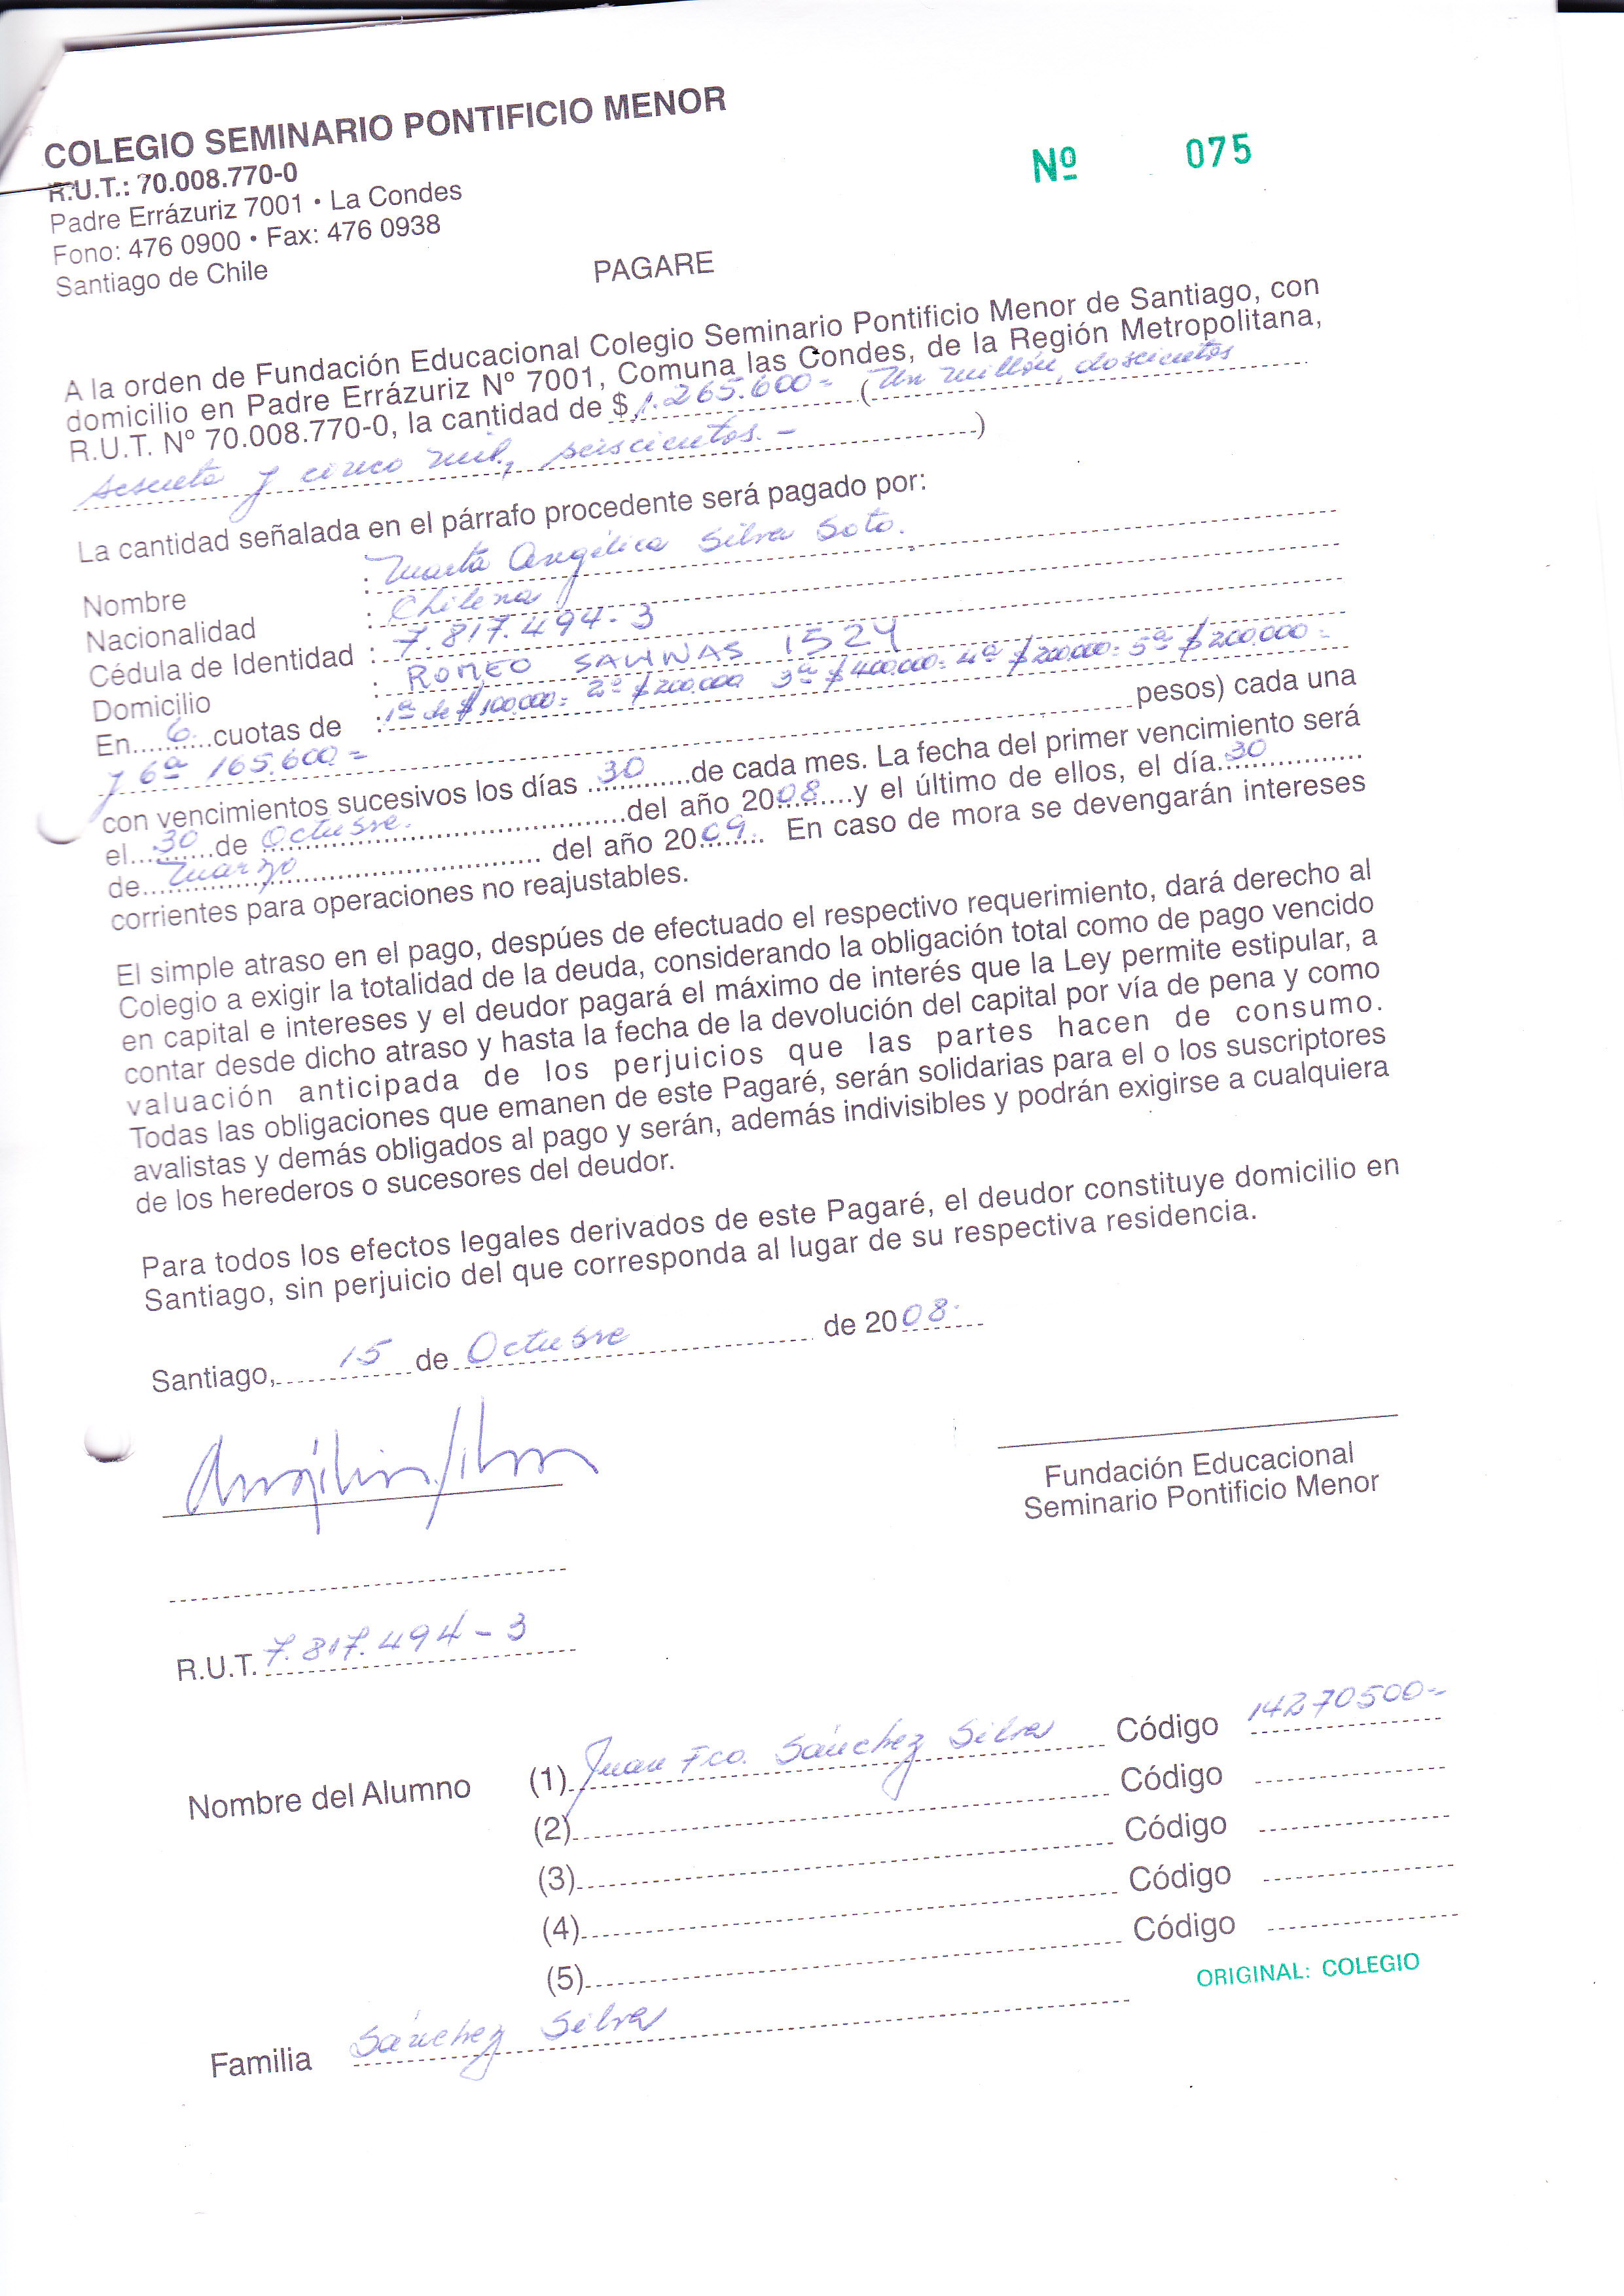 COLEGIO SEMINARIO PONTIFICIO MENOR
R.U.T.: 70.008.770-0
Padre Errázuriz 7001 • La Condes
Fono: 476 0900 • Fax: 476 0938
Santiago de Chile
Nº 075
PAGARE
A la orden de Fundación Educacional Colegio Seminario Pontificio Menor de Santiago, con
domicilio en Padre Errázuriz Nº 7001, Comuna las Condes, de la Región Metropolitana,
R.U.T. Nº 70.008.770-0, la cantidad de $ 1.265.600= (Un millón, doscientos
sesenta y cinco mil, seiscientos.-)
La cantidad señalada en el párrafo procedente será pagado por:
Nombre : Marta Angélica Silva Soto.
Nacionalidad : Chilena
Cédula de Identidad : 7.817.494-3
Domicilio : ROMEO SALINAS 1524
En 6 cuotas de : 1ª de $100.000= 2ª $200.000 3ª $400.000= 4ª $200.000= 5ª $200.000=
y 6ª 165.600= pesos) cada una
con vencimientos sucesivos los días 30 de cada mes. La fecha del primer vencimiento será
el 30 de Octubre. del año 2008 y el último de ellos, el día 30
de Marzo del año 2009. En caso de mora se devengarán intereses
corrientes para operaciones no reajustables.
El simple atraso en el pago, despúes de efectuado el respectivo requerimiento, dará derecho al
Colegio a exigir la totalidad de la deuda, considerando la obligación total como de pago vencido
en capital e intereses y el deudor pagará el máximo de interés que la Ley permite estipular, a
contar desde dicho atraso y hasta la fecha de la devolución del capital por vía de pena y como
valuación anticipada de los perjuicios que las partes hacen de consumo.
Todas las obligaciones que emanen de este Pagaré, serán solidarias para el o los suscriptores
avalistas y demás obligados al pago y serán, además indivisibles y podrán exigirse a cualquiera
de los herederos o sucesores del deudor.
Para todos los efectos legales derivados de este Pagaré, el deudor constituye domicilio en
Santiago, sin perjuicio del que corresponda al lugar de su respectiva residencia.
Santiago, 15 de Octubre de 2008.
Angélica Silva
Fundación Educacional
Seminario Pontificio Menor
R.U.T. 7.817.494-3
Nombre del Alumno (1) Juan Fco. Sánchez Silva Código 14270500=
(2) Código
(3) Código
(4) Código
(5) Código
ORIGINAL: COLEGIO
Familia Sánchez Silva